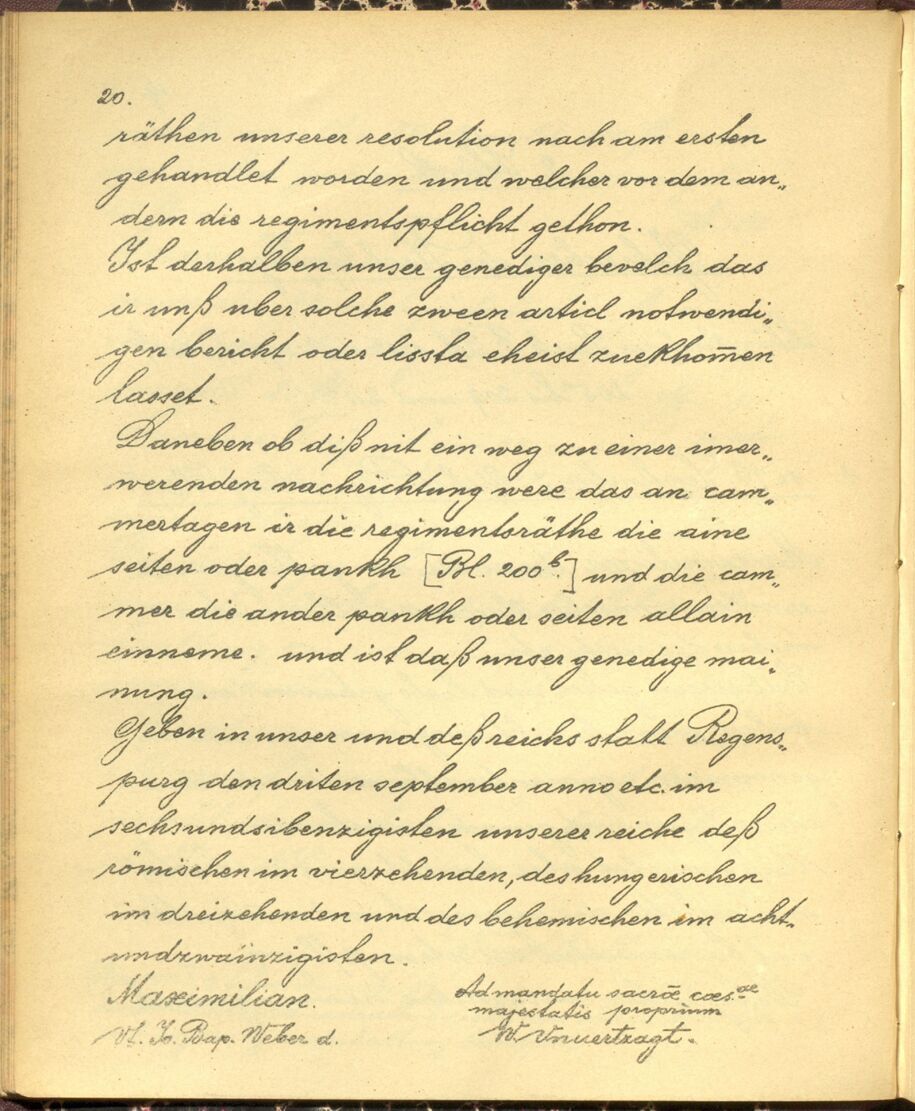 20.
räthen unserer resolution nach am ersten
gehandlet worden und welcher vor dem an„
dern die regimentspflicht gethon.
Ist derhalben unser genediger bevelch das
ir unß uber solche zween articl notwendi„
gen bericht oder lissta eheist zuekhom̄en
lasset.
Daneben ob diß nit ein weg zu einer imer„
werenden nachrichtung were das an cam„
mertagen ir die regimentsräthe die aine
seiten oder pankh [Bl. 200b.] und die cam„
mer die ander pankh oder seiten allain
einneme. und ist daß unser genedige mai„
nung.
Geben in unser und deß reichs statt Regens„
purg den driten september anno etc. im
sechsundsibenzigisten unserer reiche deß
römischen im vierzehenden, des hungerischen
im dreizehenden und des behemischen im acht„
undzwainzigisten.
Maximilian.
Vt. Jo. Bap. Weber d.
Ad mandatu sacrae caes.ae
majestatis proprium
W. Vnuertzagt.